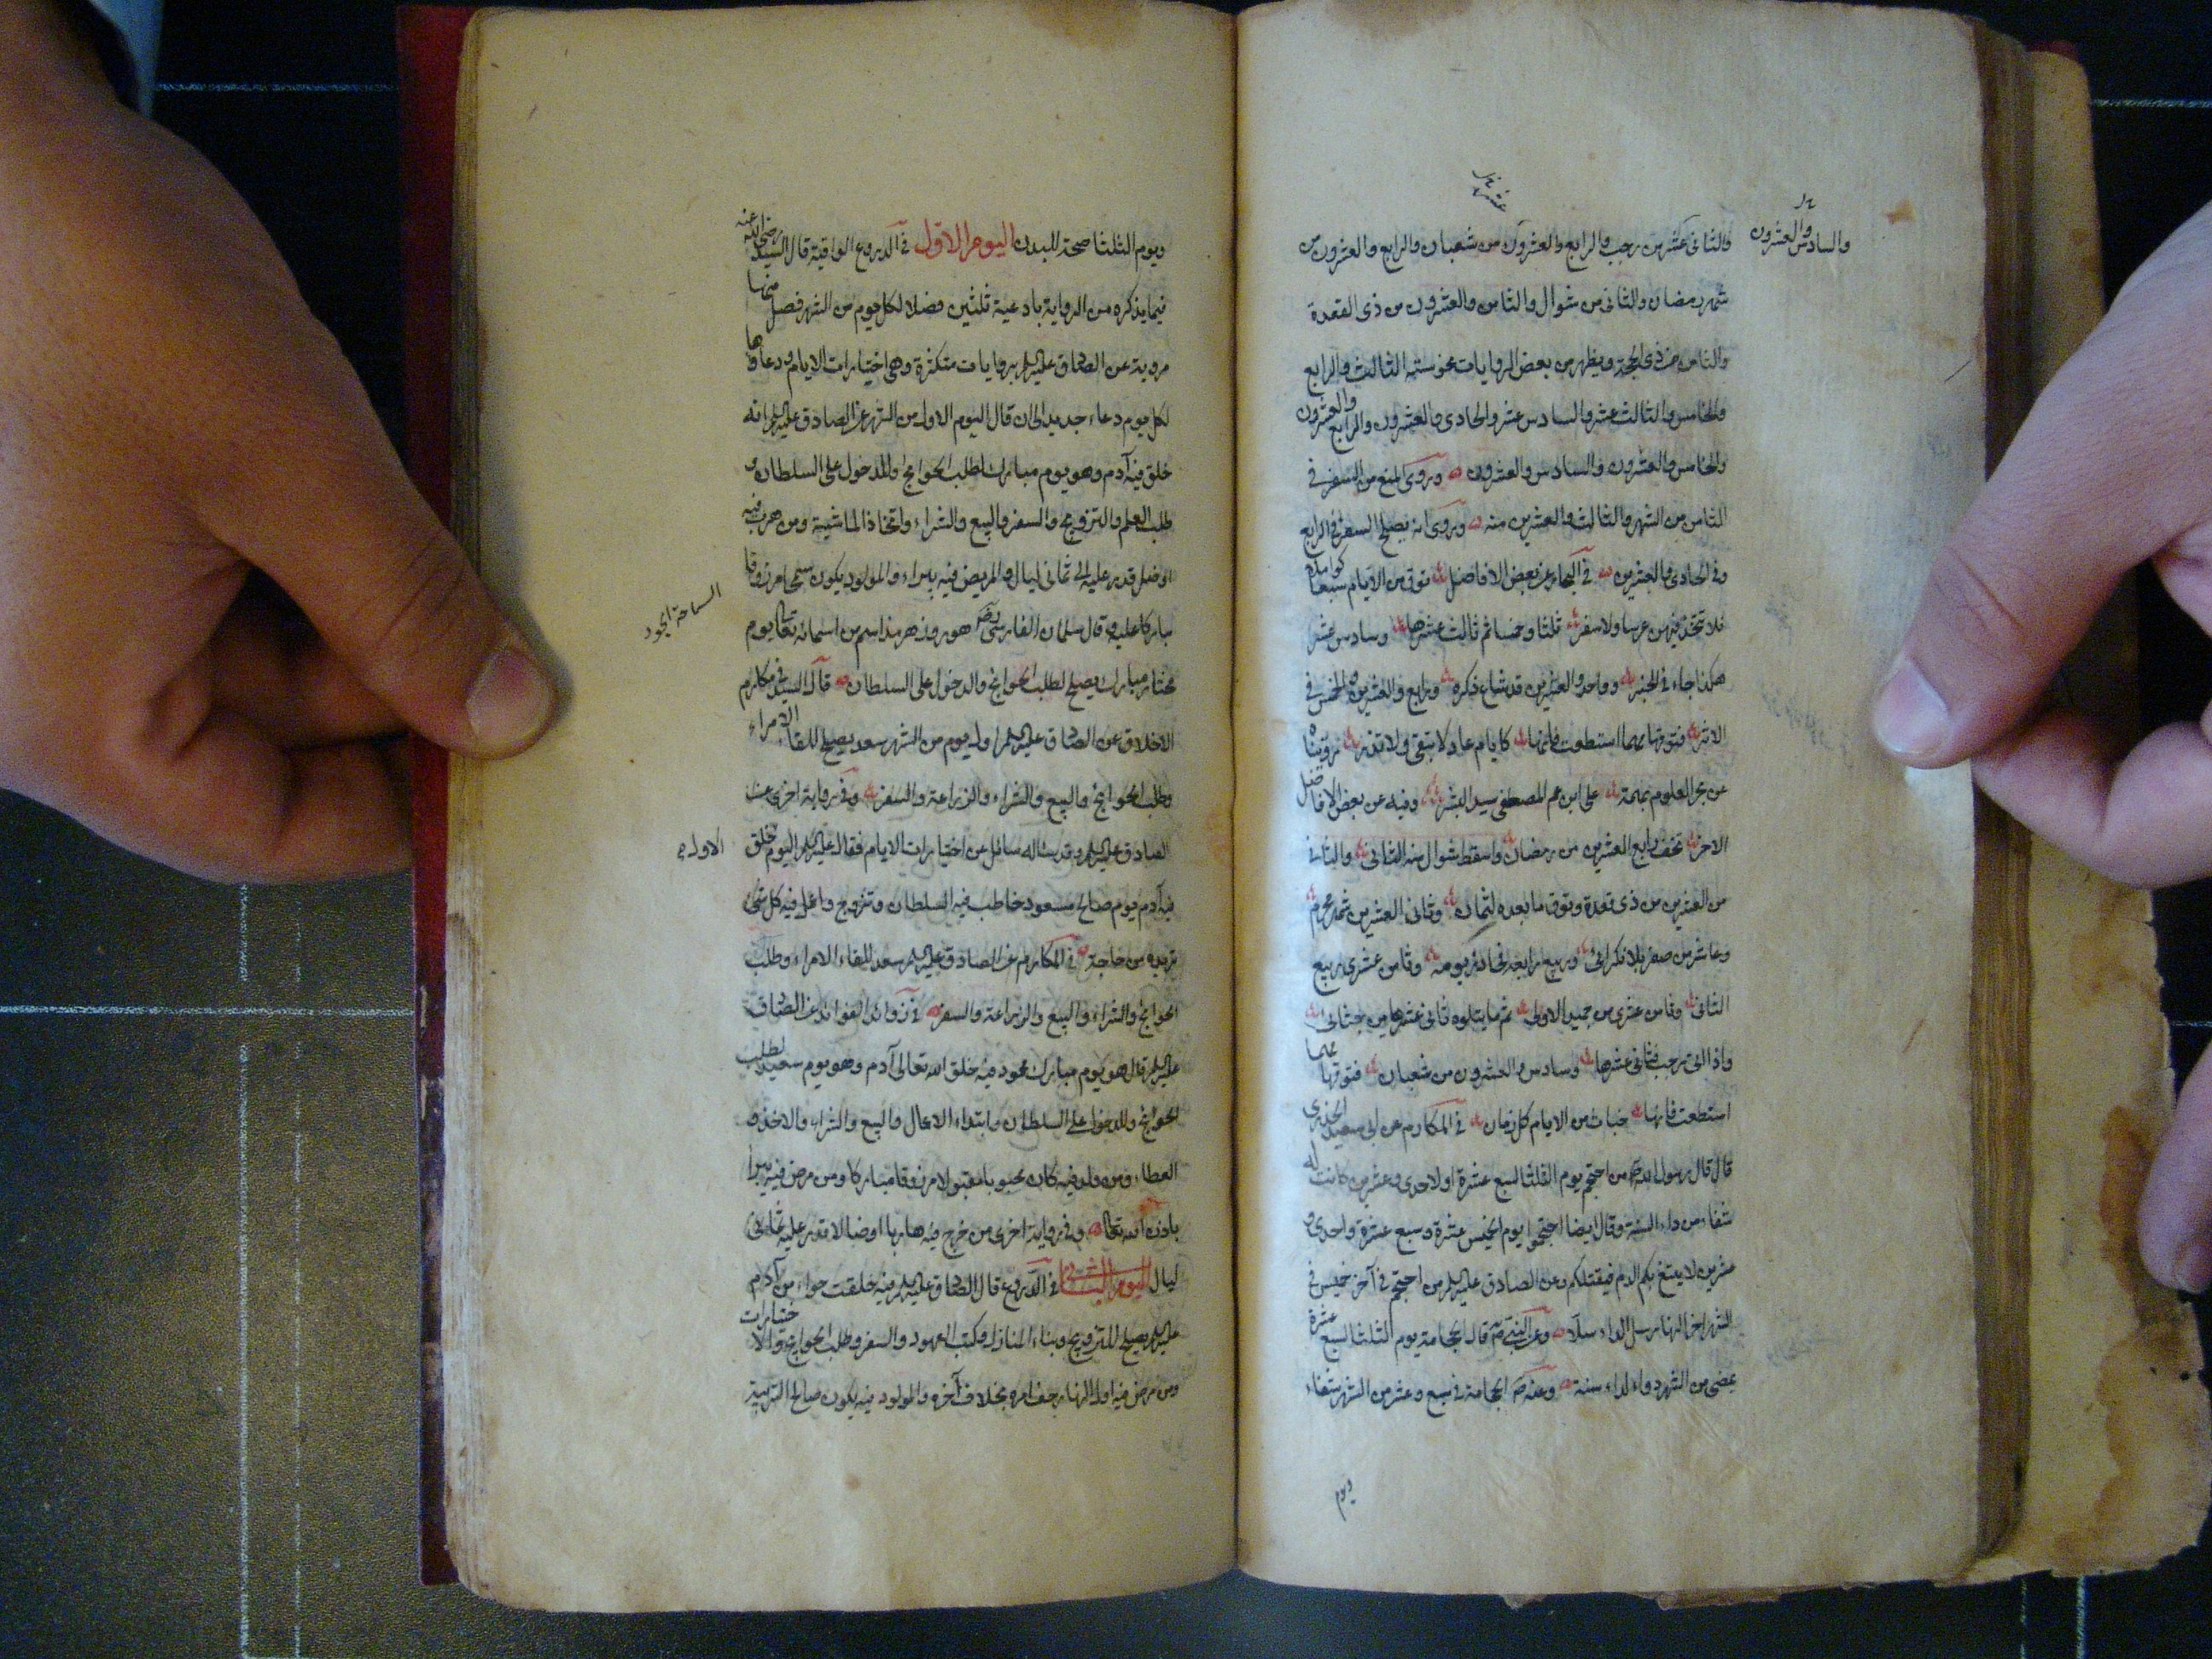 والثانى عشر من رجب والرابع والعشرون من شعبان والرابع والعشرون من
والسادس والعشرون
شهر رمضان والثانى من شوال والثامن والعشرون من ذى القعدة
والثامن من ذى الحجة ويظهر من بعض الروايات نحوسته الثالث والرابع
والخامس والثالث عشر والسادس عشر والحادى والعشرون والرابع والعشرون
والخامس والعشرون والسادس والعشرون وروى المنع من السفر فى
الثامن من الشهر والثالث والعشرين منه وروى انه يصلح السفر فى الرابع
وفى الحادى والعشرين عن بعض الافاضل توق من الايام سبعا كواملا
فلا تتخذ فيهن عرسا ولا سفر ثلثا وخمسا ثم ثالث عشرها وسادس عشر
هكذا جاء فى الخبر وواحد والعشرين قد شاع ذكره ورابع والعشرين والخمس فى
الاثر فتوقها مهما استطعت فانها كايام عاد لا تبقى ولا تذر رويناه
عن بحر العلوم بهمة على ابن عم المصطفى سيد البشر وفيه عن بعض الافاضل
الاخر تخف رابع العشرين من رمضان واسقط شوال منه الثانى والثانى
من العشرين من ذى قعدة وتوق ما بعده لثمان وثانى العشرين شهر محرم
وعاشر من صفر بلا نكرانى وربيع رابعه يومه وثامن عشرى ربيع
الثانى وثامن عشرى من جميد الاولى ثم ما يتلوه ثانى عشرها من
واذا اتى رجب فثانى عشرها وسادس والعشرون من شعبان فتوقها مهما
استطعت فانها خباث من الايام كل زمان فى المكارم عن ابى سعيد الخدرى
قال قال رسول الله ص من احتجم يوم الثلثا لسبع عشرة او لاحدى وعشرين كانت له
شفاء من داء السنة وقال ايضا احتجموا يوم الخمس عشرة وسبع عشرة واحدى و
عشرين لا يتبغ بكم الدم فيقتلكم وعن الصادق عليه السلم من احتجم فى آخر خميس فى
الشهر اخر النهار سل الداء سلا وعن النبى ص قال الحجامة يوم الثلثا لسبع عشرة
يمضى من الشهر دواء لداء سنة وعنه ص الحجامة فى سبع وعشر من الشهر شفاء
ويوم
ويوم الثلثا صحة للبدن اليوم الاول فى الدروع الواقية قال السيد رضى الله عنه
فيما يذكره من الرواية بادعية ثلثين فضلا لكل يوم من الشهر فصل منها
مروية عن الصادق عليه السلم بروايات متكثرة وهى اختيارات الايام ودعاوها
لكل يوم دعاء جديد الى ان قال اليوم الاول من الشهر عن الصادق عليه السلم انه
خلق فيه آدم وهو يوم مبارك لطلب الحوائج والدخول على السلطان و
طلب العلم والتزويج والسفر والبيع والشراء واتخاذ الماشية ومن هرب فيه
او ضل قدر عليه الى ثمانى ليال والمريض فيه يبراء والمولود يكون سمحا مرزوقا
السماحة الجود
مباركا عليه وقال سلمان الفارسى هو روز هرمذ اسم من اسمائه تعالى يوم
مختار مبارك يصلح لطلب الحوائج والدخول على السلطان قال السيد فى مكارم
الاخلاق عن الصادق عليه السلم اول يوم من الشهر سعد يصلح للقاء الامراء
وطلب الحوائج والبيع والشراء والزراعة والسفر وفى رواية اخرى عن
الصادق عليه السلم وقد ساله سائل عن اختيارات الايام فقال عليه السلم اليوم خلق
الاول
فيه آدم يوم صالح مسعود خاطب فيه السلطان وتزوج واعمل فيه كل شى
تريده من حاجة فى المكارم عن الصادق عليه السلم سعد للقاء الامراء وطلب
الحوائج والشراء والبيع والزراعة والسفر فى زوائد الفوائد عن الصادق
عليه السلم قال هو يوم مبارك محمود فيه خلق الله تعالى آدم وهو يوم سعيد لطلب
الحوائج والدخول على السلطان وابتداء الاعمال والبيع والشراء والاخذ و
العطاء ومن ولد فيه كان محبوبا مقبولا مرزوقا مباركا ومن مرض فيه يبرا
باذن الله تعالى وفى رواية اخرى من خرج فيه هاربا او ضالا قدر عليه ثمانى
ليال اليوم الثانى فى الدروع قال الصادق عليه السلم فيه خلقت حواء من آدم
عليه السلم يصلح للتزويج وبناء المنازل وكتب العهود والسفر وطلب الحوائج والاختيارات
ومن مرض فيه اول النهار خف امره بخلاف آخره والمولود فيه يكون صالح التربية